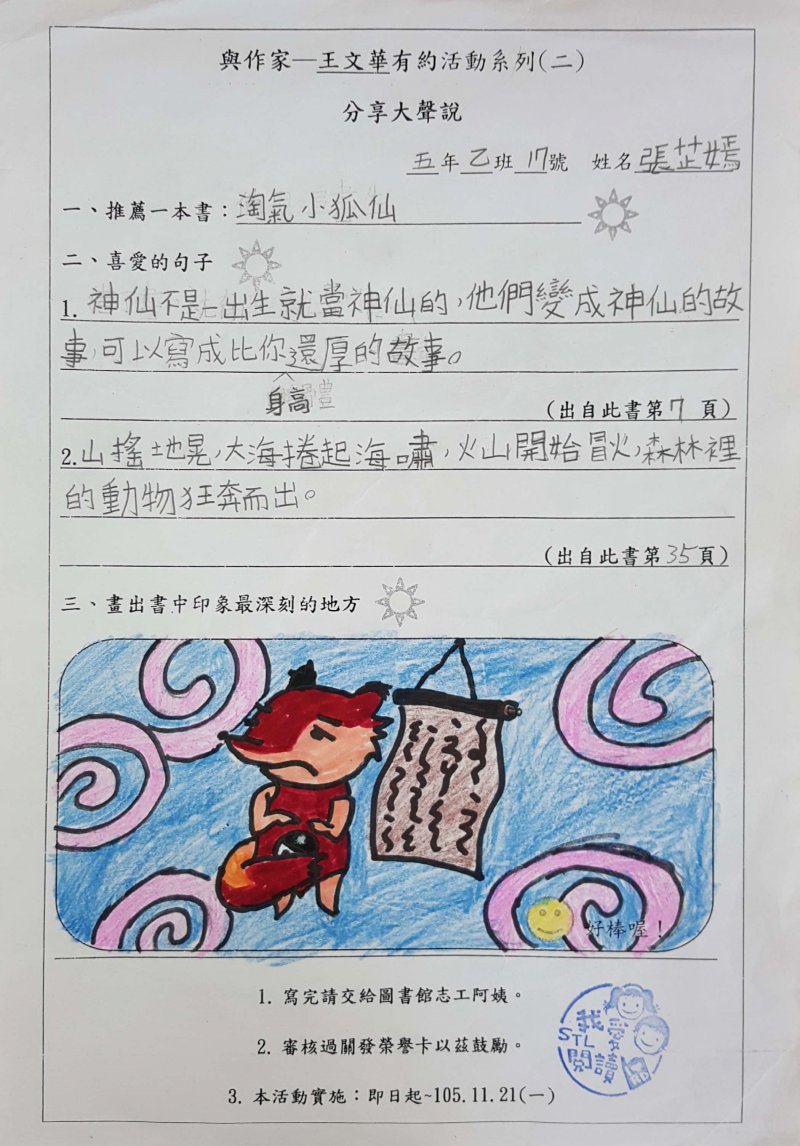 與作家—王文華有約活動系列(二)
分享大聲說
五年乙班17號 姓名張芷嫣
一、推薦一本書：淘氣小狐仙
二、喜愛的句子
1. 神仙不是一出生就當神仙的，他們變成神仙的故
事，可以寫成比你還厚的故事。
身高
(出自此書第7頁)
2.山搖地晃，大海捲起海嘯，火山開始冒火，森林裡
的動物狂奔而出。
(出自此書第35頁)
三、畫出書中印象最深刻的地方
好棒喔！
1. 寫完請交給圖書館志工阿姨。
2. 審核過關發榮譽卡以茲鼓勵。
3. 本活動實施：即日起~105.11.21(一)
我愛
STL
閱讀